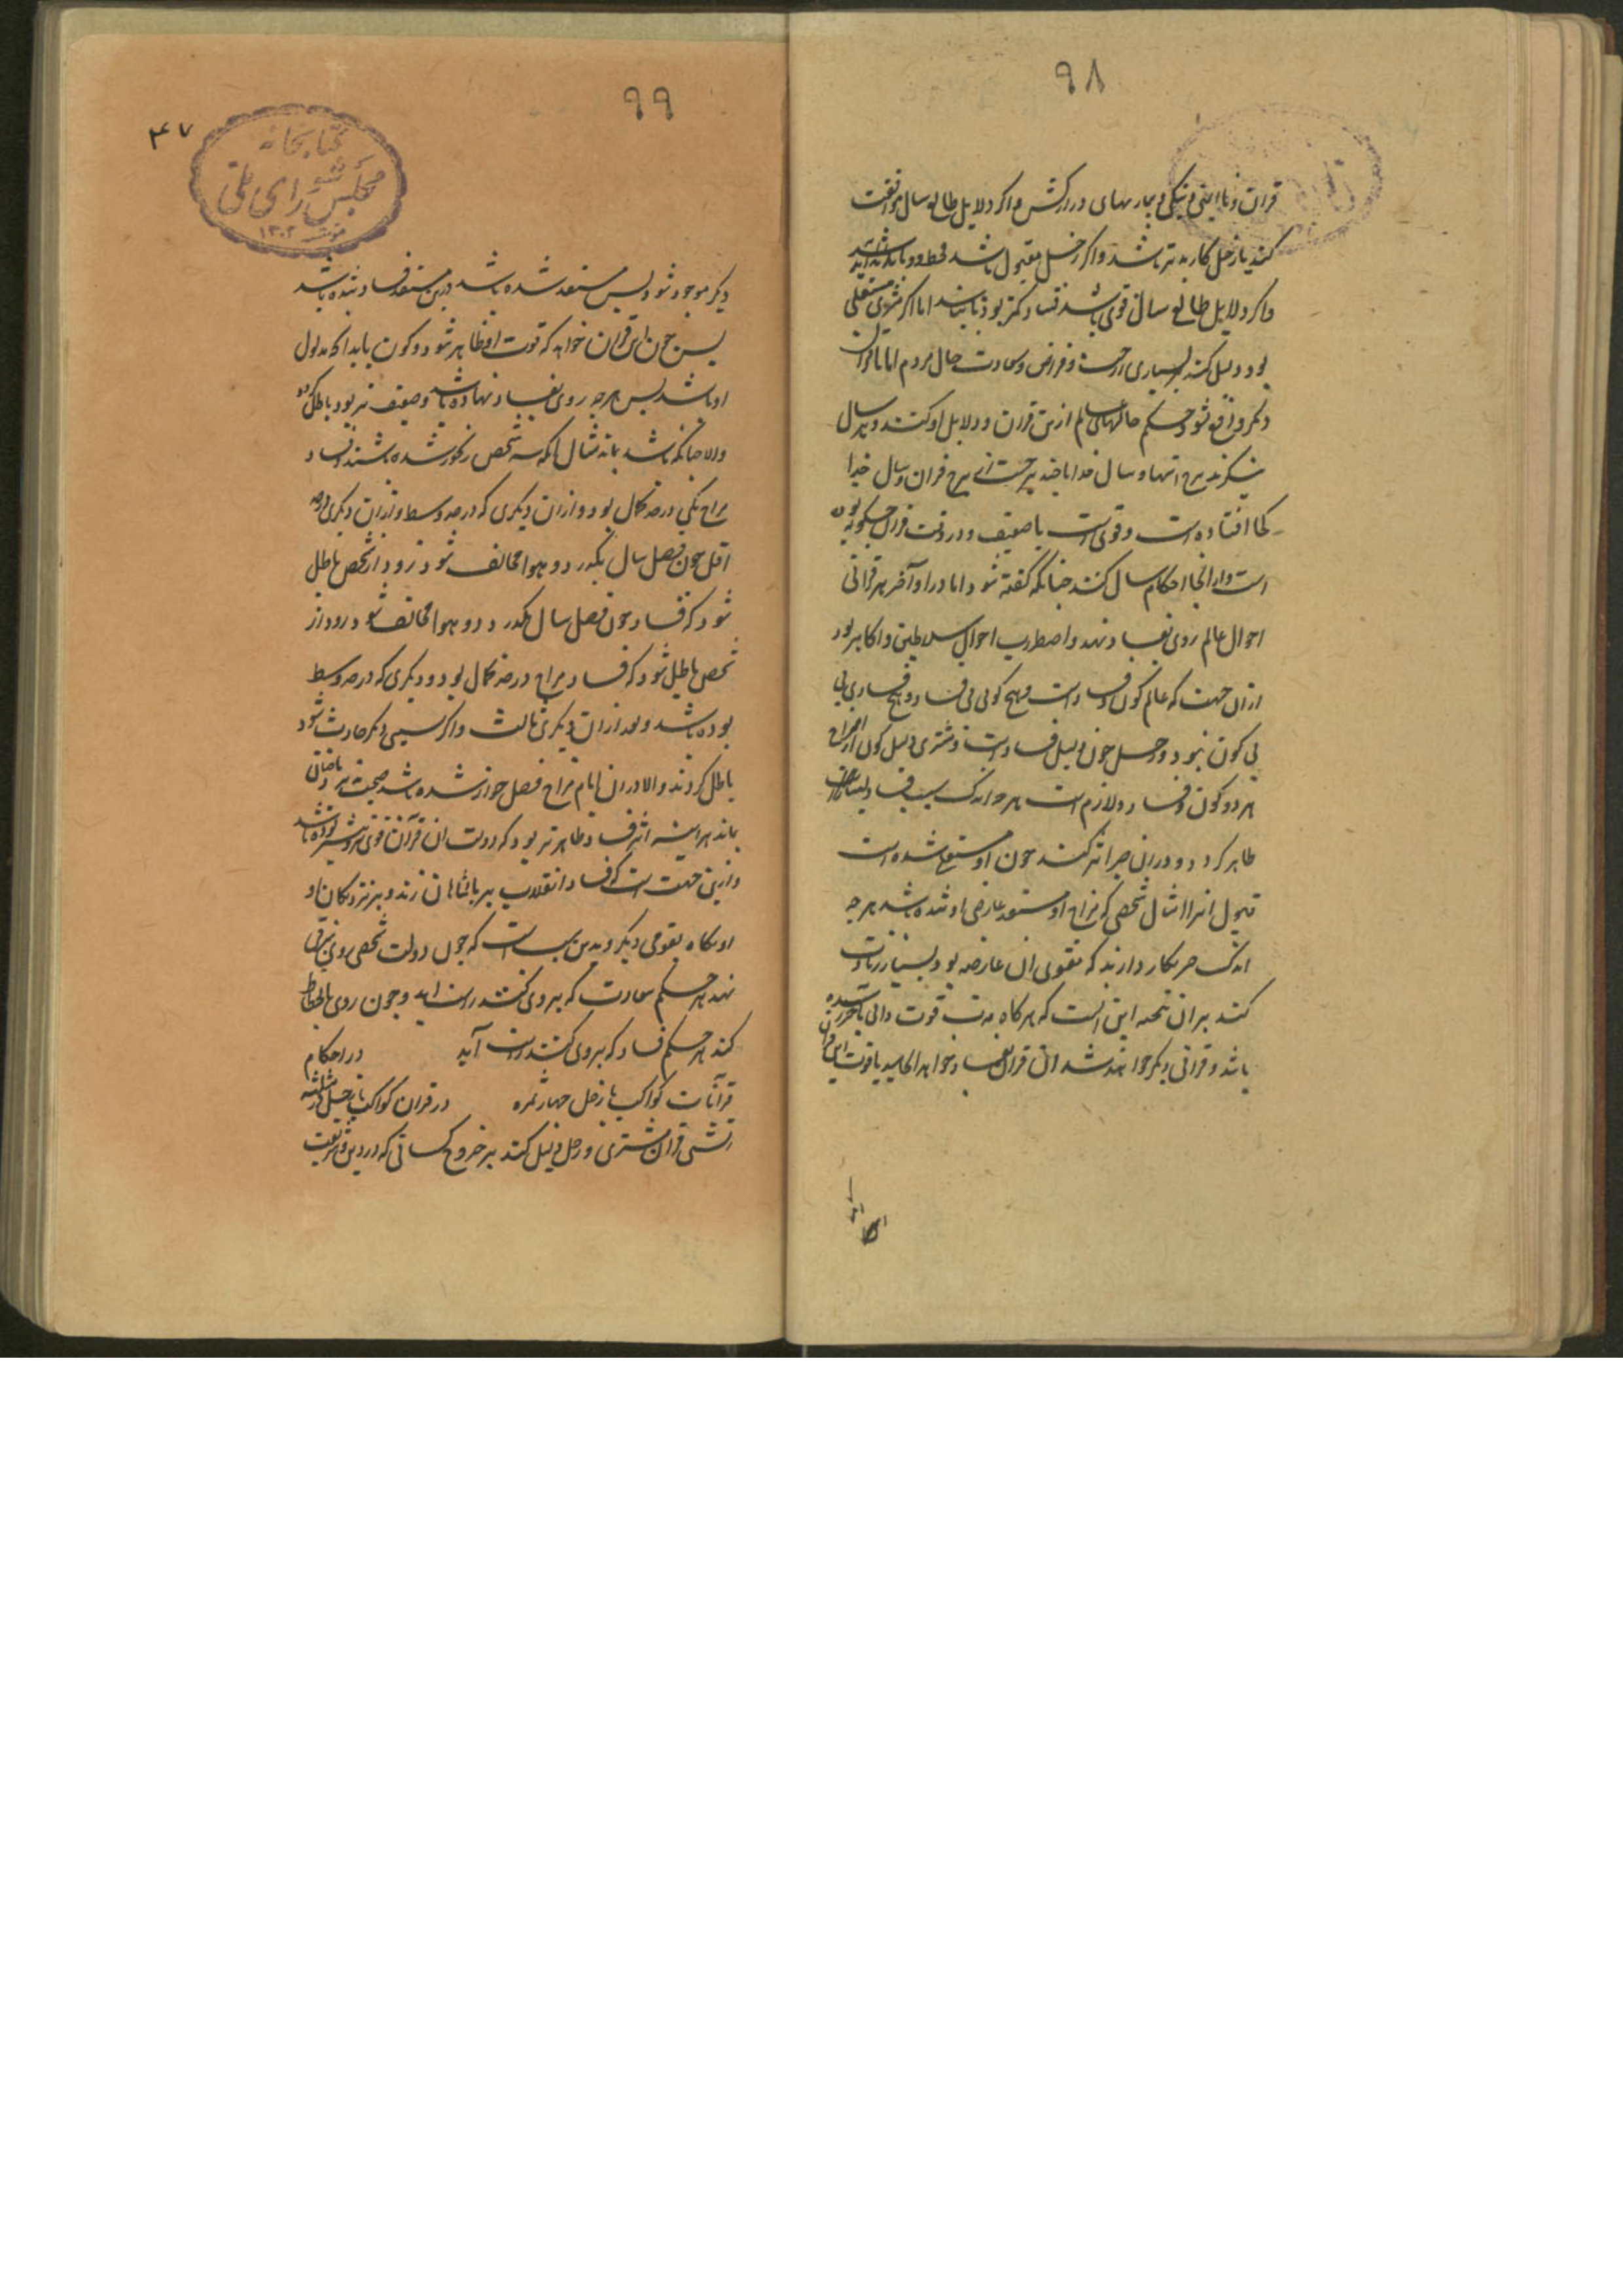 ۹۸
قران و ناایمنی و نیکی و بیماریهای دراز کشش و اگر دلایل طالع سال موافقت
کند با زحل کار بدتر باشد و اگر زحل مقبول باشد قحط و وبا
و اگر دلایل طالع سال قوی باشد فساد کمتر بود اما اگر مشتری مستعلی
بود دلیل کند بر بسیاری و سعادت حال مردم اما تا قران
دیگر واقع شود حکم حالهای عالم ازین قران و دلایل او کنند و هر سال
بنگرند برج انتها و سال خدا تا چند برجست از برج قران و سال خدا
کجا افتاده است و قوی است یا ضعیف و در وقت قران چگونه بوده
است و از آنجا احکام سال کنند چنانکه گفته شود اما در اواخر هر قرانی
احوال عالم روی بفساد نهد و اضطراب احوال سلاطین و اکابر بود
ازان جهت که عالم کون و فساد است و هیچ کونی بی فساد و هیچ فسادی بی
بی کون نبود و زحل چون دلیل فساد است و مشتری دلیل کون از امتزاج
هر دو کون و فساد لازم است هر چه اندک سبب فساد
ظاهر گردد و در ان چیز اثر کند چون او مستعد شده است
قبول انرا مثال شخصی که مزاج او مستعد عارضی شده باشد هر چه
اندک چیز بکار دارند که مقوی ان عارضه بود بسیار زیادت
کند بر ان نتیجه این است که هرگاه مدت قوت دالی باخر رسیده
باشد و قرانی دیگر خواهد شد ان قران بفساد خواهد انجامید یا قوت این قران
۹۹
۴۷
کتابخانه
مجلس شورای ملی
۱۳۰۲
دیگر موجود شود پس مستعد شده باشد درین مستعد فساد شده باشد
پس چون این قران خواهد که قوت او ظاهر شود و کون باید آنکه مدلول
او باشد پس هرچه روی بفساد نهاده باشد و ضعیف تر بود باطل گردد
والا چنانکه باشد بماند مثال آنکه سه شخص رنجور شده باشند و فساد
مزاج یکی در درجه کمال بود و ازان دیگری که در درجه وسط و ازان دیگری در درجه
اقل چون فصل سال بگذرد و هوا مخالف شود زود از شخص باطل
شود که فساد چون فصل سال بگذرد و هوا مخالف شود زود از
شخص باطل شود که فساد مزاج در درجه کمال بود و دیگری که در درجه وسط
بوده باشد و بعد ازان دیگری ثالث و اگر سببی دیگر حادث شود
باطل گردند والا دران ایام مزاج فصل
بماند هر آینه اشرف و ظاهرتر بود که دولت ان قران قوی تر
و ازین جهت است که فساد و انقلاب بر پادشاهان زند و بر نزدیکان او
آنگاه بقومی دیگر و بدین سبب است که چون دولت شخصی روی بترقی
نهد هر حکم سعادت که بر وی کنند راست آید و چون روی بانحطاط
کند هر حکم فساد که بر وی کنند راست آید در احکام
قرانات کواکب با زحل چهار ثمره در قران کواکب با زحل در مثلثه
آتشی قران مشتری و زحل دلیل کند بر خروج کسانی که در دین و شریعت